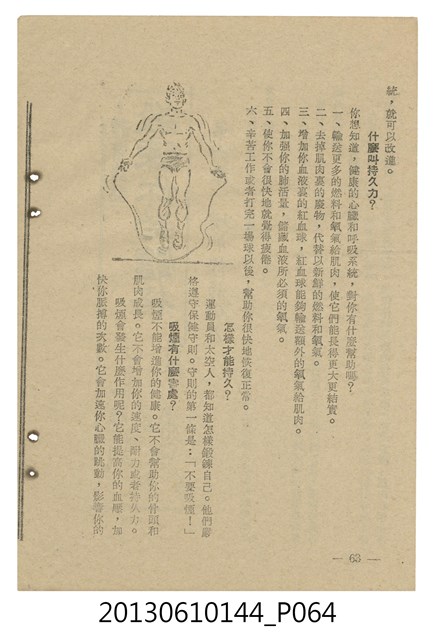 統，就可以改進。
什麼叫持久力？
你想知道，健康的心臟和呼吸系統，對你有什麼幫助嗎？
一、輸送更多的燃料和氧氣給肌肉，使它們能長得更大更結實。
二、去掉肌肉裏的廢物，代替以新鮮的燃料和氧氣。
三、增加你血液裏的紅血球，紅血球能夠輸送額外的氧氣給肌肉。
四、加强你的肺活量，儲藏血液所必須的氧氣。
五、使你不會很快地就覺得疲倦。
六、辛苦工作或者打完一場球以後，幫助你很快地恢復正常。
怎樣才能持久？
運動員和太空人，都知道怎樣鍛鍊自己。他們嚴
格遵守保健守則。守則的第一條是：「不要吸煙！」
吸煙有什麼害處？
吸煙不能增進你的健康。它不會幫助你的骨頭和
肌肉成長。它不會增加你的速度、耐力或者持久力。
吸煙會發生什麼作用呢？它能提高你的血壓，加
快你脈搏的次數。它會加速你心臟的跳動，影響你的
— 63 —
20130610144_P064